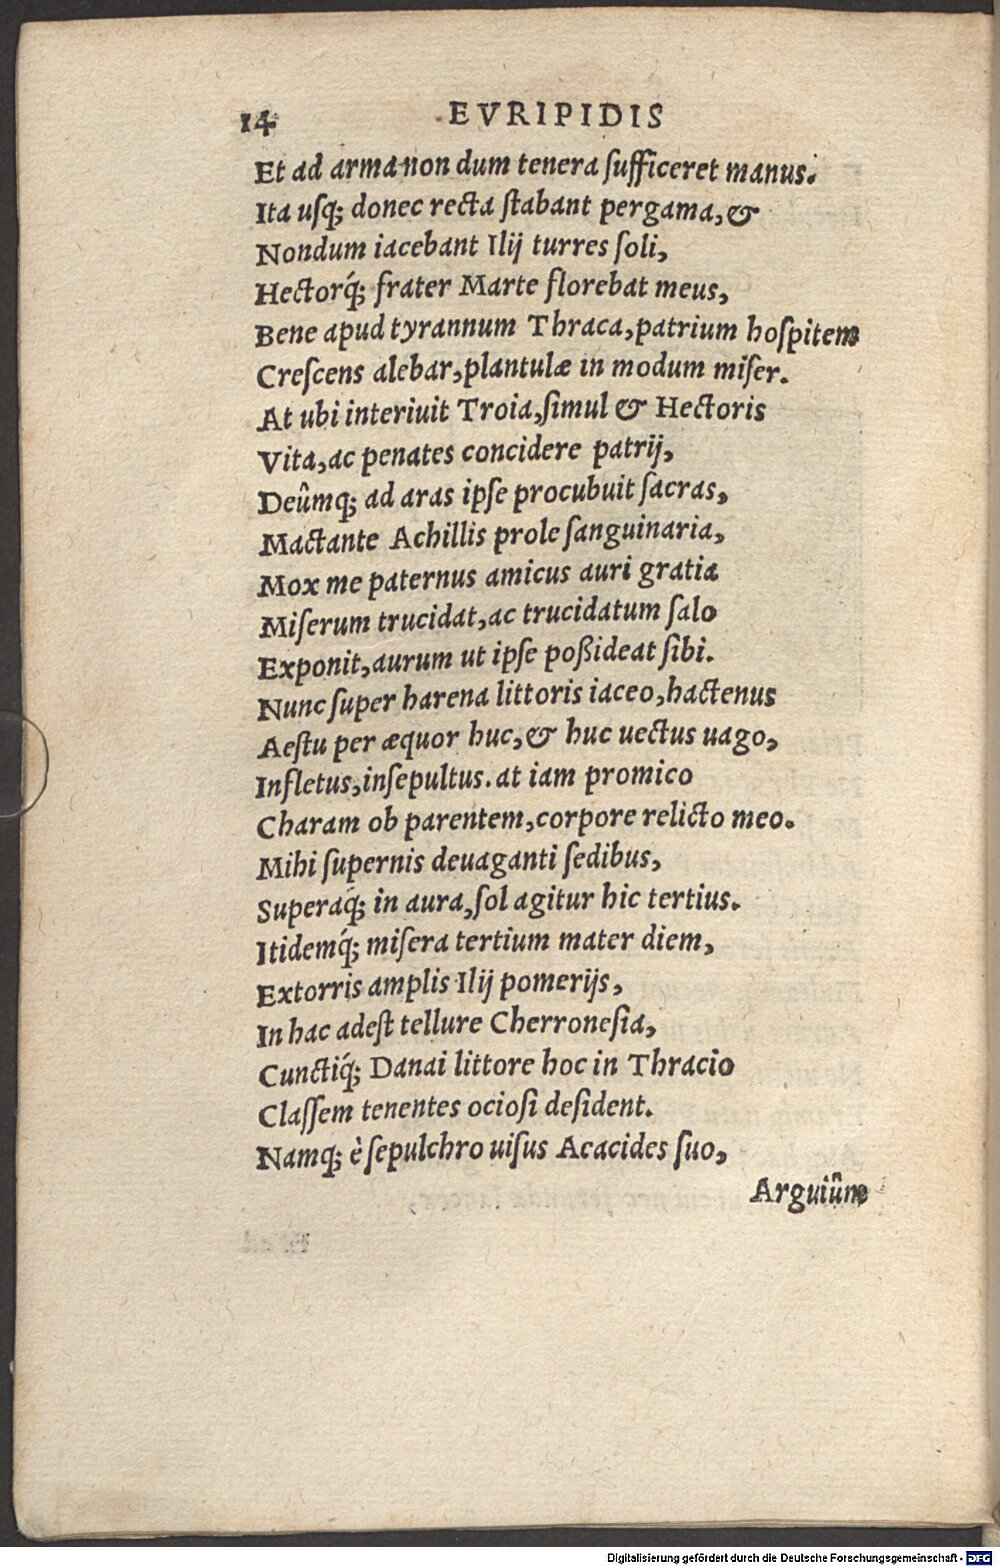 14 EVRIPIDIS
Et ad arma non dum tenera ſufficeret manus.
Ita uſq; donec recta ſtabant pergama, &
Nondum iacebant Ilij turres ſoli,
Hectorq́; frater Marte florebat meus,
Bene apud tyrannum Thraca, patrium hoſpitem
Creſcens alebar, plantulæ in modum miſer.
At ubi interiuit Troia, ſimul & Hectoris
Vita, ac penates concidere patrij,
Deûmq; ad aras ipſe procubuit ſacras,
Mactante Achillis prole ſanguinaria,
Mox me paternus amicus auri gratia
Miſerum trucidat, ac trucidatum ſalo
Exponit, aurum ut ipſe poßideat ſibi.
Nunc ſuper harena littoris iaceo, hactenus
Aeſtu per æquor huc, & huc uectus uago,
Infletus, inſepultus. at iam promico
Charam ob parentem, corpore relicto meo.
Mihi ſupernis deuaganti ſedibus,
Superaq́; in aura, ſol agitur hic tertius.
Itidemq́; miſera tertium mater diem,
Extorris amplis Ilij pomerijs,
In hac adeſt tellure Cherroneſia,
Cunctiq́; Danai littore hoc in Thracio
Claſſem tenentes ocioſi deſident.
Namq; è ſepulchro uiſus Aeacides ſuo,
Arguiûm
Digitalisierung gefördert durch die Deutsche Forschungsgemeinschaft - DFG